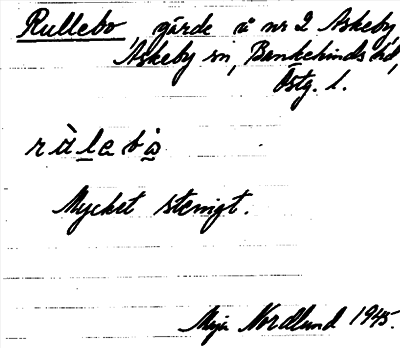 Rullebo, gärde å nr 2 Askeby,
Askeby sn, Bankekinds hd,
Östg. l.
Mycket stenigt.
Maja Nordlund 1945.